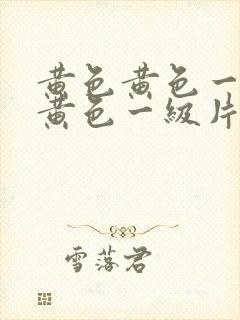 黄色黄色一
黄色一級片
雪落君